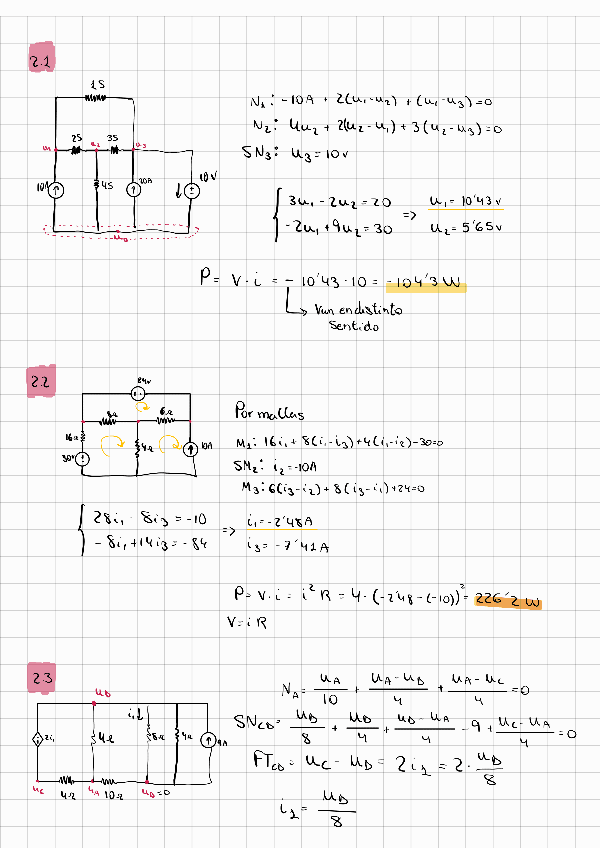 2.1
1S
2S
3S
u₁
u₂
u₃
10A
4S
30A
10V
u₀
N₁: -10A + 2(u₁-u₂) + (u₁-u₃)=0
N₂: 4u₂ + 2(u₂-u₁) + 3(u₂-u₃)=0
SN₃: u₃=10v
3u₁ - 2u₂ = 20 => u₁= 10'43v
-2u₁ + 9u₂ = 30 u₂= 5'65v
P= V·i = - 10'43·10 = -104'3 W
Van en distinto
sentido
2.2
84v
8Ω
6Ω
16Ω
4Ω
10A
30V
Por mallas
M₁: 16i₁ + 8(i₁-i₃)+4(i₁-i₂)-30=0
SM₂: i₂=-10A
M₃: 6(i₃-i₂)+8(i₃-i₁)+24=0
28i₁ - 8i₃ = -10 => i₁=-2'48A
-8i₁+14i₃=-84 i₃= -7'41A
P= V·i = i²R = 4·(-2'48-(-10))²= 226'2 W
V=iR
2.3
u_D
i₁↓
2i₁
4Ω
8Ω
4Ω
9A
u_C
4Ω
u_A
10Ω
u_B=0
N_A= u_A/10 + (u_A-u_D)/4 + (u_A-u_C)/4 =0
SN_CD= u_D/8 + u_D/4 + (u_D-u_A)/4 -9 + (u_C-u_A)/4 =0
FT_CD= u_C - u_D = 2i₁ = 2· u_D/8
i₁= u_D/8